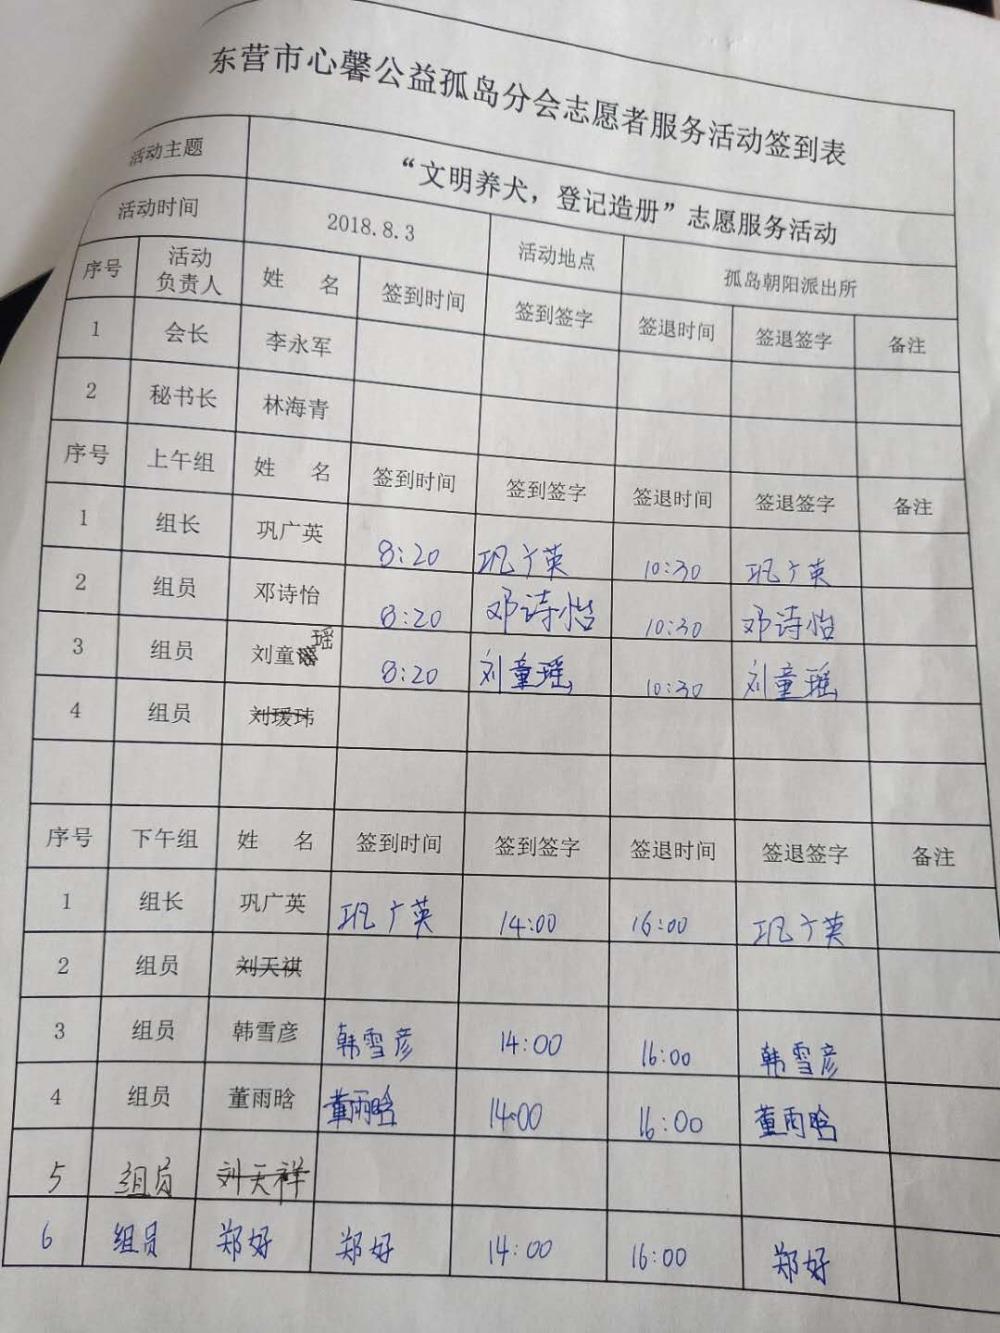 东营市心馨公益孤岛分会志愿者服务活动签到表
活动主题 “文明养犬，登记造册”志愿服务活动
活动时间 2018.8.3 活动地点 孤岛朝阳派出所
序号 活动负责人 姓 名 签到时间 签到签字 签退时间 签退签字 备注
1 会长 李永军
2 秘书长 林海青
序号 上午组 姓 名 签到时间 签到签字 签退时间 签退签字 备注
1 组长 巩广英 8:20 巩广英 10:30 巩广英
2 组员 邓诗怡 8:20 邓诗怡 10:30 邓诗怡
3 组员 刘童瑶 8:20 刘童瑶 10:30 刘童瑶
4 组员 刘瑷玮
序号 下午组 姓 名 签到时间 签到签字 签退时间 签退签字 备注
1 组长 巩广英 巩广英 14:00 16:00 巩广英
2 组员 刘天祺
3 组员 韩雪彦 韩雪彦 14:00 16:00 韩雪彦
4 组员 董雨晗 董雨晗 14:00 16:00 董雨晗
5 组员 刘天祥
6 组员 郑好 郑好 14:00 16:00 郑好